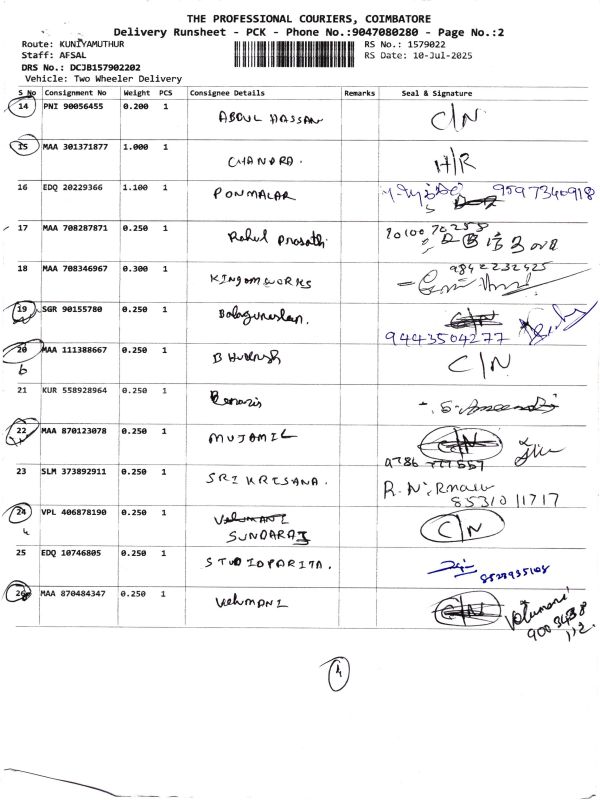 THE PROFESSIONAL COURIERS, COIMBATORE
Delivery Runsheet - PCK - Phone No.:9047080280 - Page No.:2
Route: KUNIYAMUTHUR RS No.: 1579022
Staff: AFSAL RS Date: 10-Jul-2025
DRS No.: DCJB157902202
Vehicle: Two Wheeler Delivery
S No Consignment No Weight PCS Consignee Details Remarks Seal & Signature
14 PNI 90056455 0.200 1 ABDUL HASSAN C/N
15 MAA 301371877 1.000 1 CHANDRA. H/R
16 EDQ 20229366 1.100 1 PONMALAR 9597340918
17 MAA 708287871 0.250 1 Rahul Prasath
18 MAA 708346967 0.300 1 KINGOMWORKS 9842232425
19 SGR 90155780 0.250 1 C/N
9443504277
20 MAA 111388667 0.250 1 C/N
21 KUR 558928964 0.250 1
22 MAA 870123078 0.250 1 MUJAMIL C/N
23 SLM 373892911 0.250 1 SRI KRISANA. R.N.
85310 11717
24 VPL 406878190 0.250 1 VELUMANI C/N
SUNDARAJ
25 EDQ 10746805 0.250 1 STUDIOPARITA.
26 MAA 870484347 0.250 1 VELUMANI C/N Velumani
9003438
112.